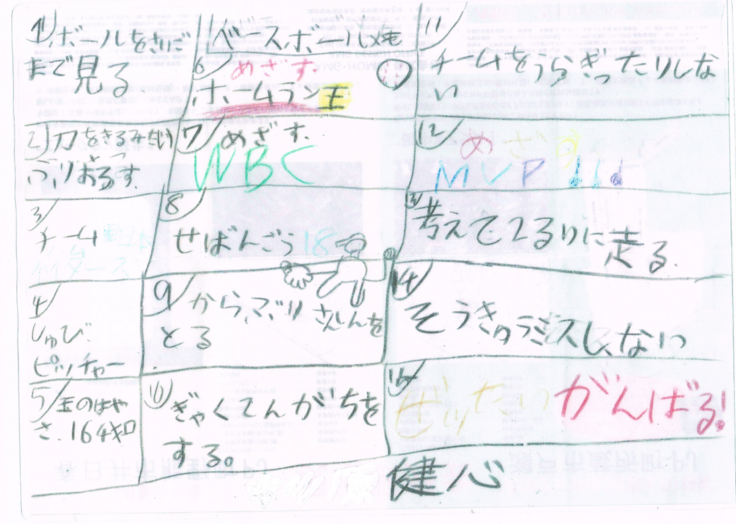 ベースボール
1 ボールをさいご
まで見る
2 刀をきるみたい
ふりおろす.
3
チーム
4
しゅび.
ピッチャー
5 玉のはや
さ.164キロ
6 めざす.
ホームラン王
7 めざす.
WBC
8
せばんごう18
9 からぶり さんしんを
とる
10 ぎゃくてんがちを
する。
11
チームをうらぎったりしな
い
12 めざす
MVP!!!
13
考えて2るいに走る.
14
そうきゅうミスしない
ぜったいがんばる!
健心